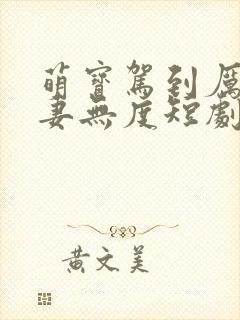 萌寶駕到厲
妻無度短劇
黃文美